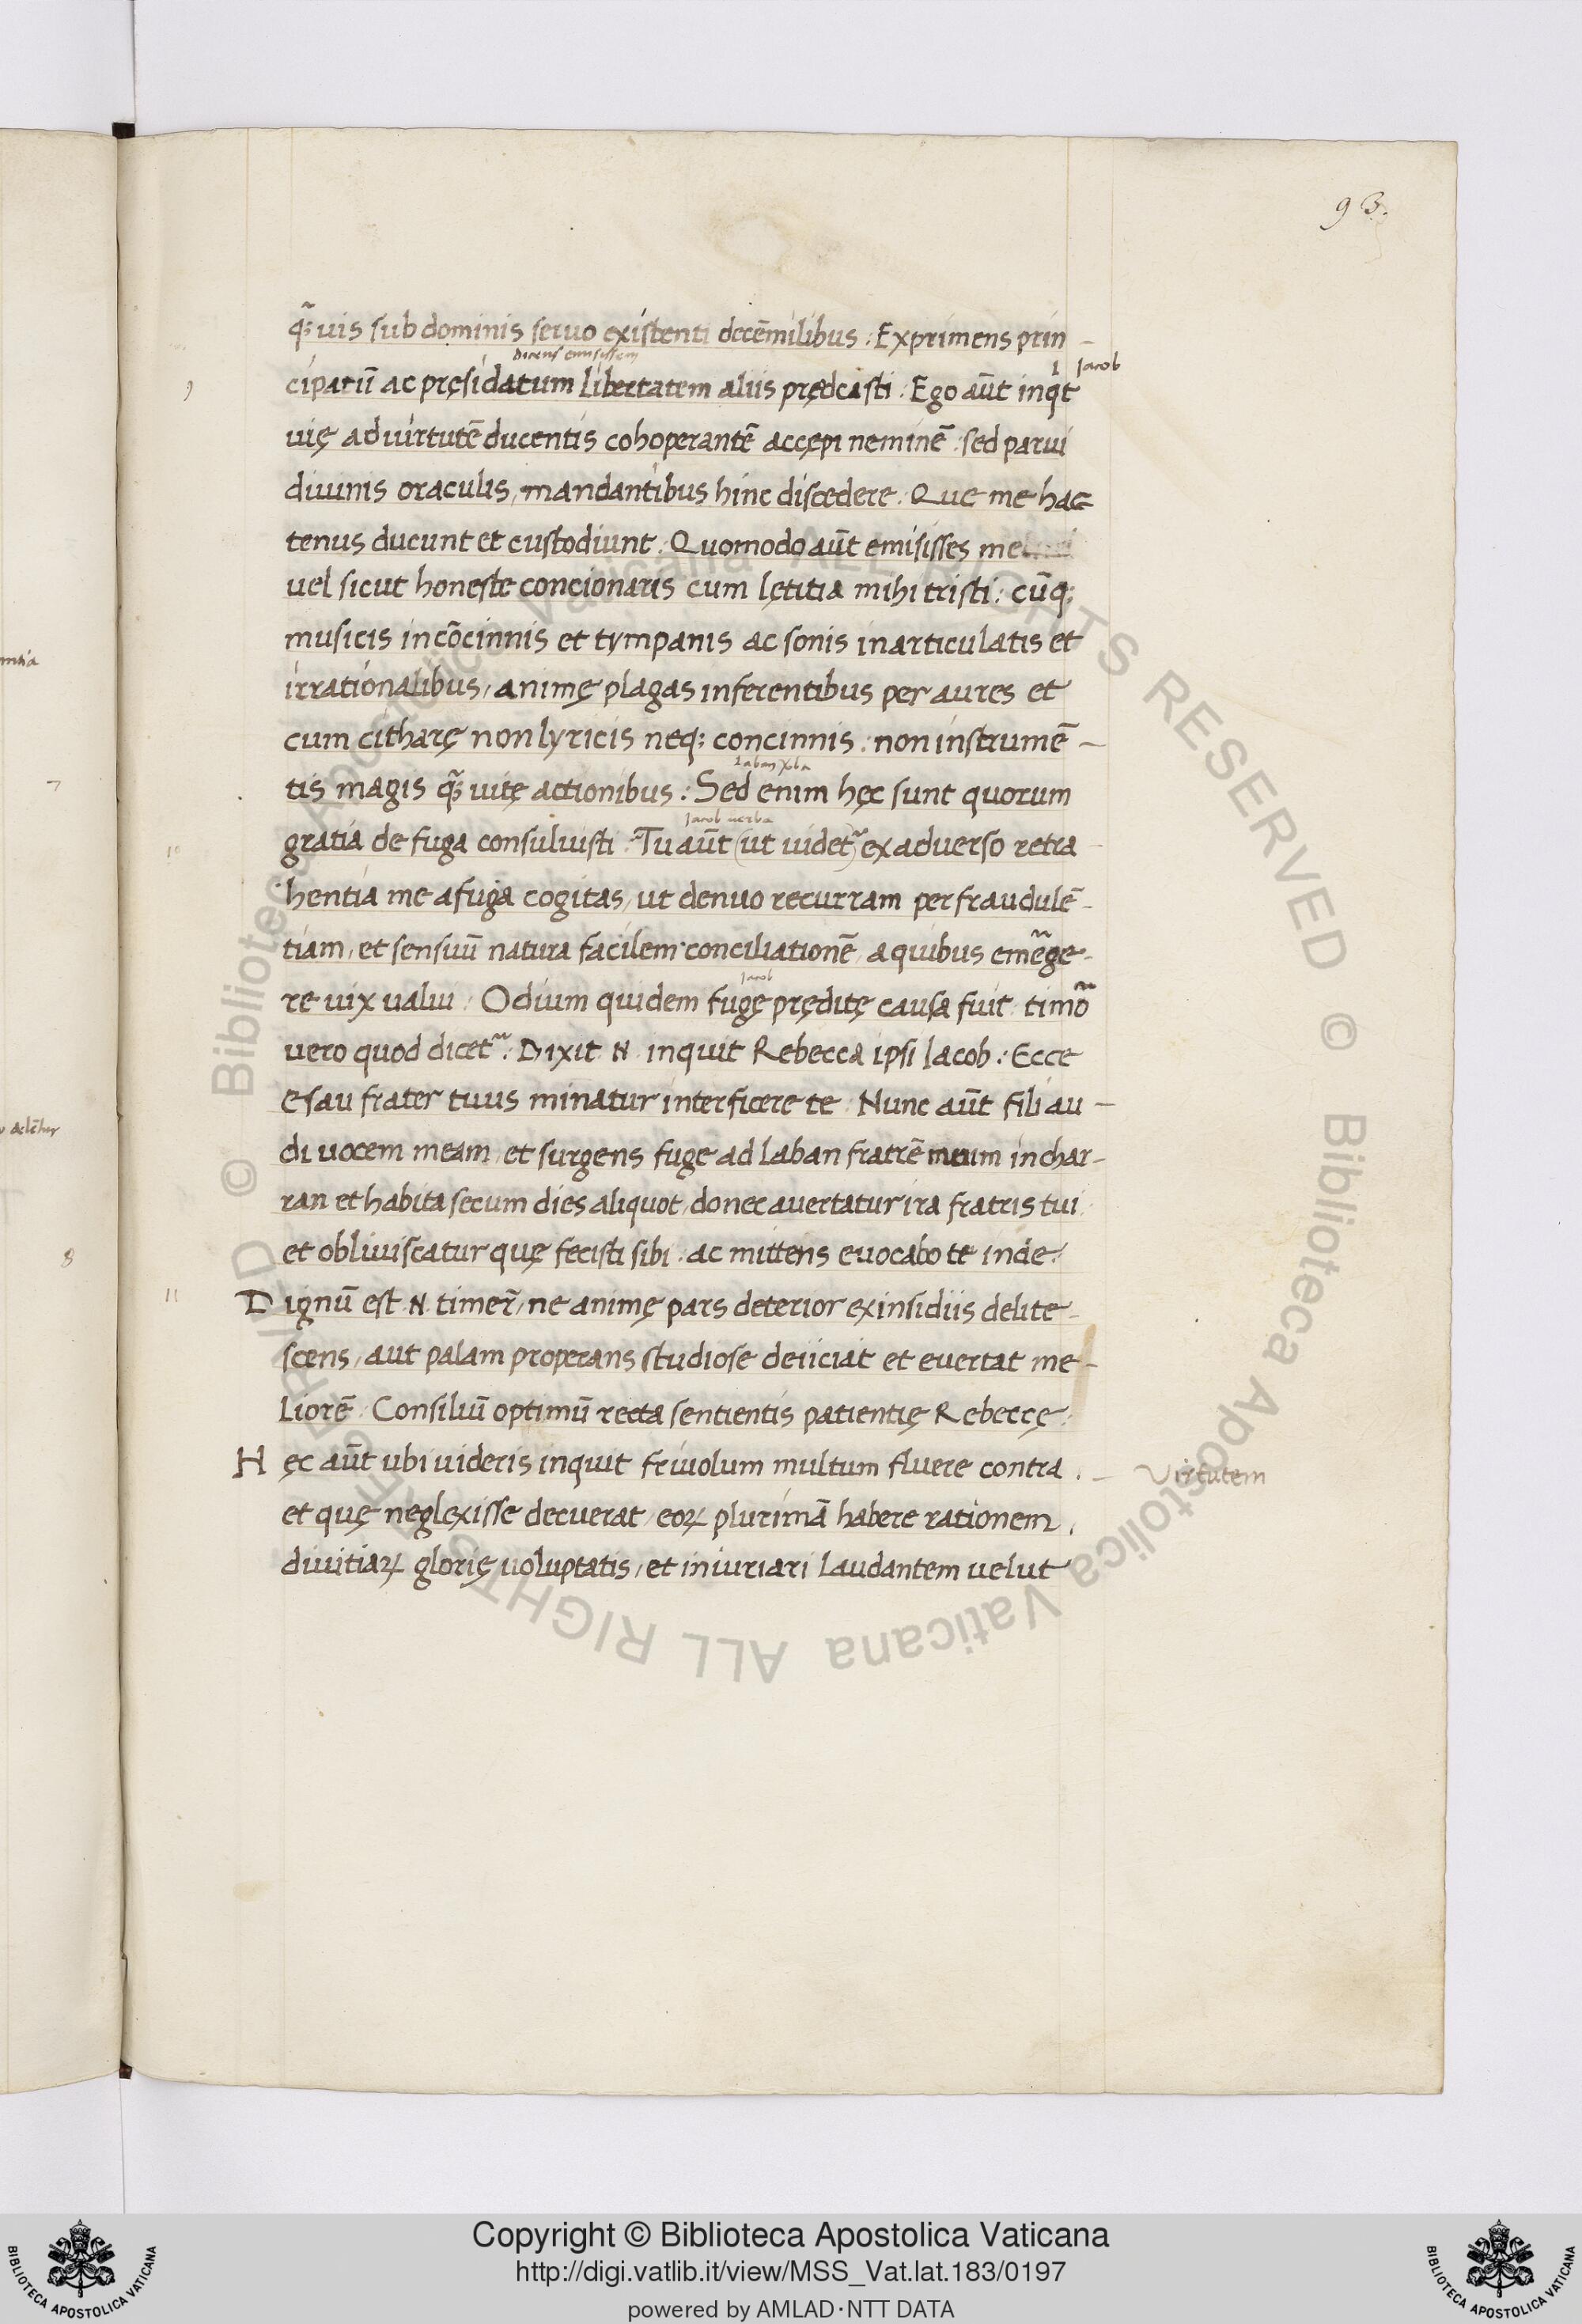 93.
q̃uis sub dominis seruo existenti decẽmilibus : Exprimens prin-
cipatũ ac pręsidatum libertatem aliis prędcasti : Ego aũt inqt
Jacob
uię ad uirtutẽ ducentis cohoperantẽ accępi neminẽ : sed parui
diuinis oraculis, mandantibus hinc discedere . Que me hac
tenus ducunt et custodiunt . Quomodo aũt emisisses me
uel sicut honeste concionaris cum lętitia mihi tristi : cũq;
musicis incõcinnis et tympanis ac sonis inarticulatis et
irrationalibus, animę plagas inferentibus per aures et
cum citharę non lyricis neq; concinnis . non instrumẽ-
tis magis q̃ uitę actionibus : Sed enim hęc sunt quorum
Jacob uerba
gratia de fuga consuluisti : Tu aũt (ut uidet᷑) ex aduerso retra-
hentia me a fuga cogitas, ut denuo recurram per fraudulẽ-
tiam, et sensuũ natura facilem conciliationẽ, a quibus emẽge-
Jacob
re uix ualui . Odium quidem fugę pręditę causa fuit : timõ
uero quod dicet᷑ . Dixit .N. inquit Rebecca ipsi Iacob : Ecce
esau frater tuus minatur interficere te . Nunc aũt fili au-
di uocem meam, et surgens fuge ad Laban fratrẽ meum in char-
ran et habita secum dies aliquot, donec auertatur ira fratris tui .
et obliuiscatur quę fecisti sibi . ac mittens euocabo te inde :
11 Dignũ est .N. timer̃, ne animę pars deterior ex insidiis delite-
scens, aut palam properans studiose deiiciat et euertat me-
liorẽ : Consiliũ optimũ recta sentientis patientię Rebeccę :
Hęc aũt ubi uideris inquit friuolum multum fluere contra . - Virtutem
et quę neglexisse decuerat, eoꝝ plurimã habere rationem .
diuitiaꝝ glorię uoluptatis, et iniuriari laudantem uelut
8
Copyright © Biblioteca Apostolica Vaticana
http://digi.vatlib.it/view/MSS_Vat.lat.183/0197
powered by AMLAD·NTT DATA
BIBLIOTECA APOSTOLICA VATICANA
BIBLIOTECA APOSTOLICA VATICANA
© Biblioteca Apostolica Vaticana ALL RIGHTS RESERVED © Biblioteca Apostolica Vaticana ALL RIGHTS RESERVED